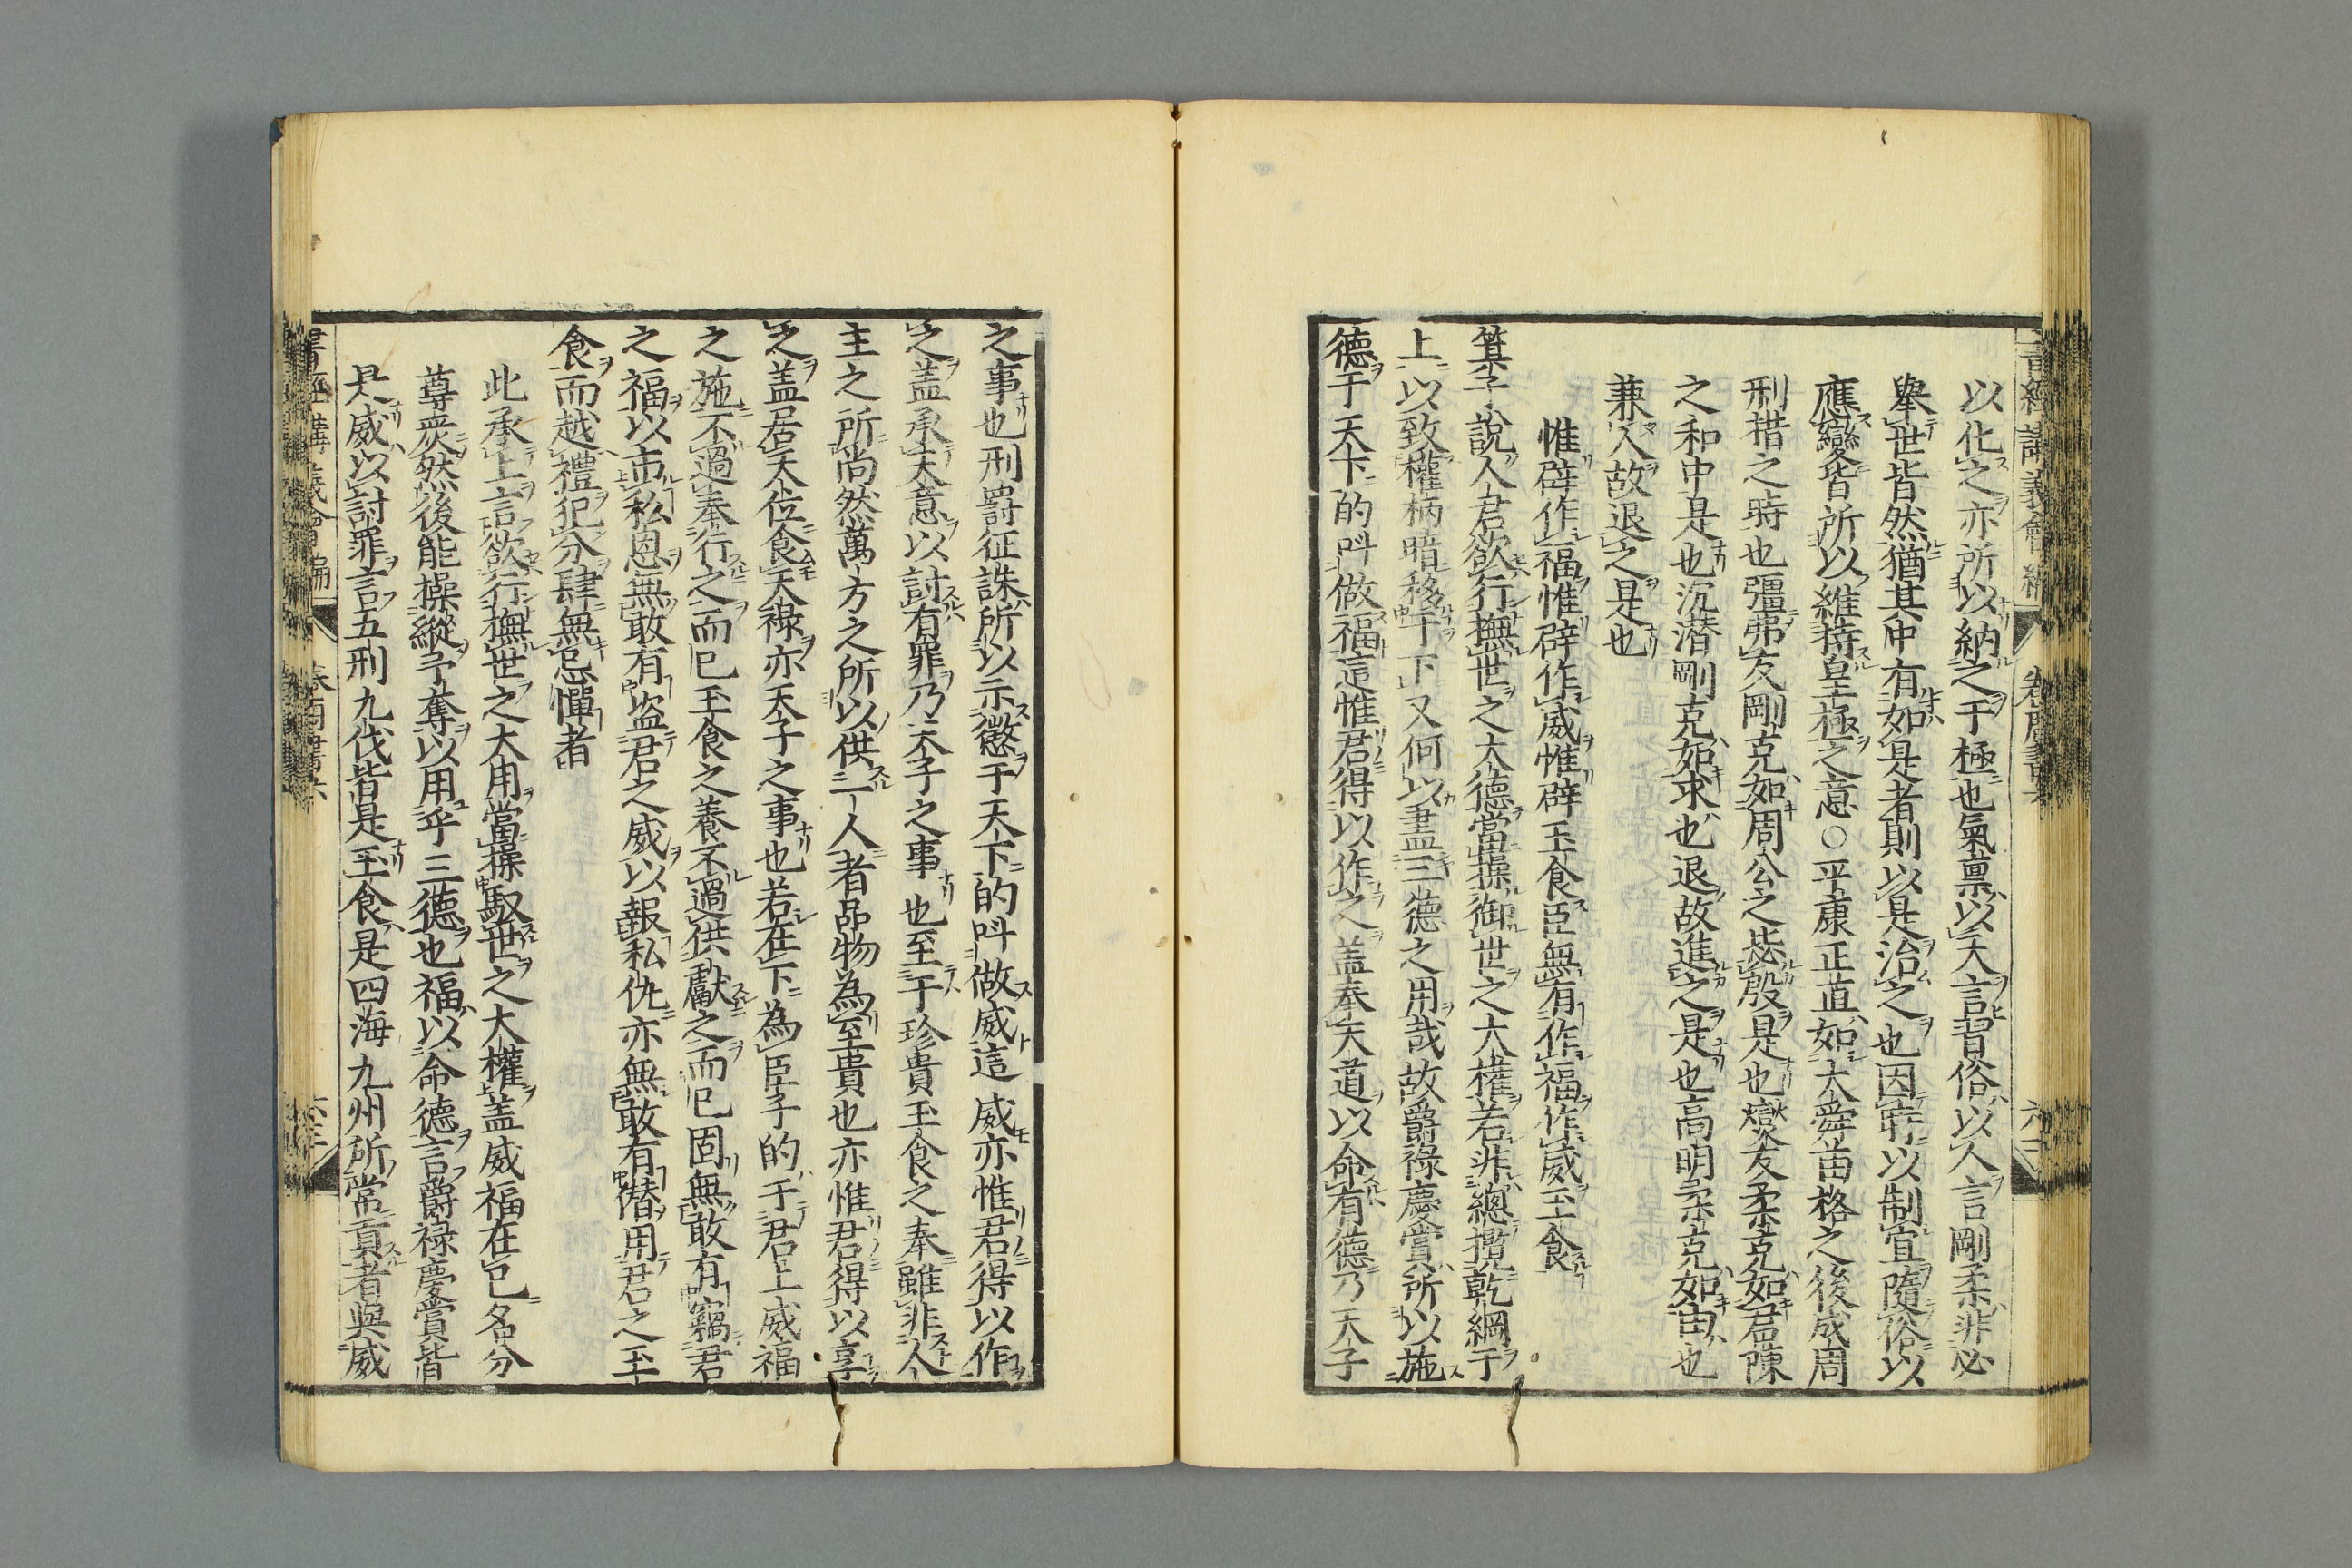 以化之亦所以納之于極也氣稟以天言習俗以人言剛柔非必
舉世皆然猶其中有如是者則以是治之也因時以制宜隨俗以
應變皆所以維持皇極之意○平康正直如大舜苗格之後成周
刑措之時也彊弗友剛克如周公之毖殷是也燮友柔克如君陳
之和中是也沉潜剛克如求也退故進之是也高明柔克如由也
兼人故退之是也
惟辟作福惟辟作威惟辟玉食臣無有作福作威玉食
箕子說人君欲行撫世之大德當操御世之大權若非總攬乾綱于
上以致權柄暗移于下又何以盡三德之用哉故爵祿慶賞所以施
德于天下的呌做福這惟君得以作之盖奉天道以命有德乃天子
之事也刑罸征誅所以示懲于天下的呌做威這威亦惟君得以作
之盖承天意以討有罪乃天子之事也至于珍貴玉食之奉雖非人
主之所尚然萬方之所以供一人者品物為至貴也亦惟君得以享
之盖居天位食天禄亦天子之事也若在下為臣子的于君上威福
之施不過奉行之而已玉食之養不過供獻之而已固無敢有竊君
之福以市私恩無敢有盗君之威以報私仇亦無敢有僣用君之玉
食而越禮犯分肆無忌憚者
此承上言欲行撫世之大用當操馭世之大權盖威福在已名分
尊嚴然後能操縱予奪以用乎三德也福以命德言爵禄慶賞皆
是威以討罪言五刑九伐皆是玉食是四海九州所常貢者與威
書經講義會編